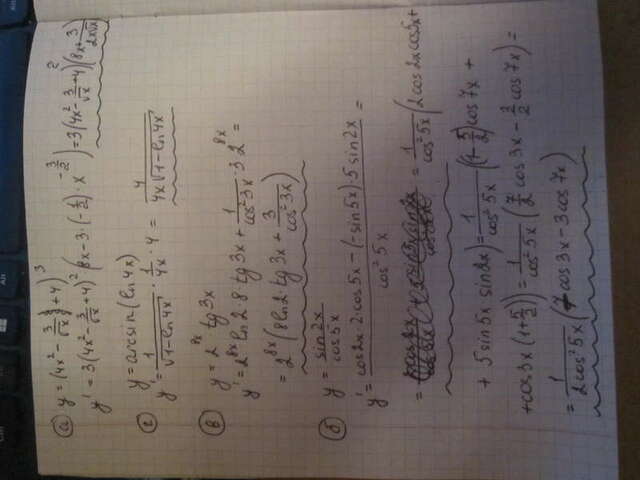 а) y = (4x² - 3/√x + 4)³
y' = 3(4x² - 3/√x + 4)² (8x - 3·(-1/2)·x^(-3/2)) = 3(4x² - 3/√x + 4)²(8x + 3/(2x√x))
г) y = arcsin(ln 4x)
y' = 1/√(1-ln 4x) · 1/4x · 4 = 4/(4x√(1-ln 4x))
в) y = 2^(8x) tg 3x
y' = 2^(8x) ln 2 8 tg 3x + 1/cos² 3x · 3 2^(8x) =
= 2^(8x) (8 ln 2 tg 3x + 3/cos² 3x)
б) y = sin 2x/cos 5x
y' = (cos 2x 2 cos 5x - (-sin 5x)·5 sin 2x)/cos² 5x =
= 1/cos² 5x (2 cos 2x cos 5x +
+ 5 sin 5x sin 2x) = 1/cos² 5x ((1 - 5/2) cos 7x +
+ cos 3x (1 + 5/2)) = 1/cos² 5x (7/2 cos 3x - 3/2 cos 7x) =
= 1/(2 cos² 5x) (7 cos 3x - 3 cos 7x)